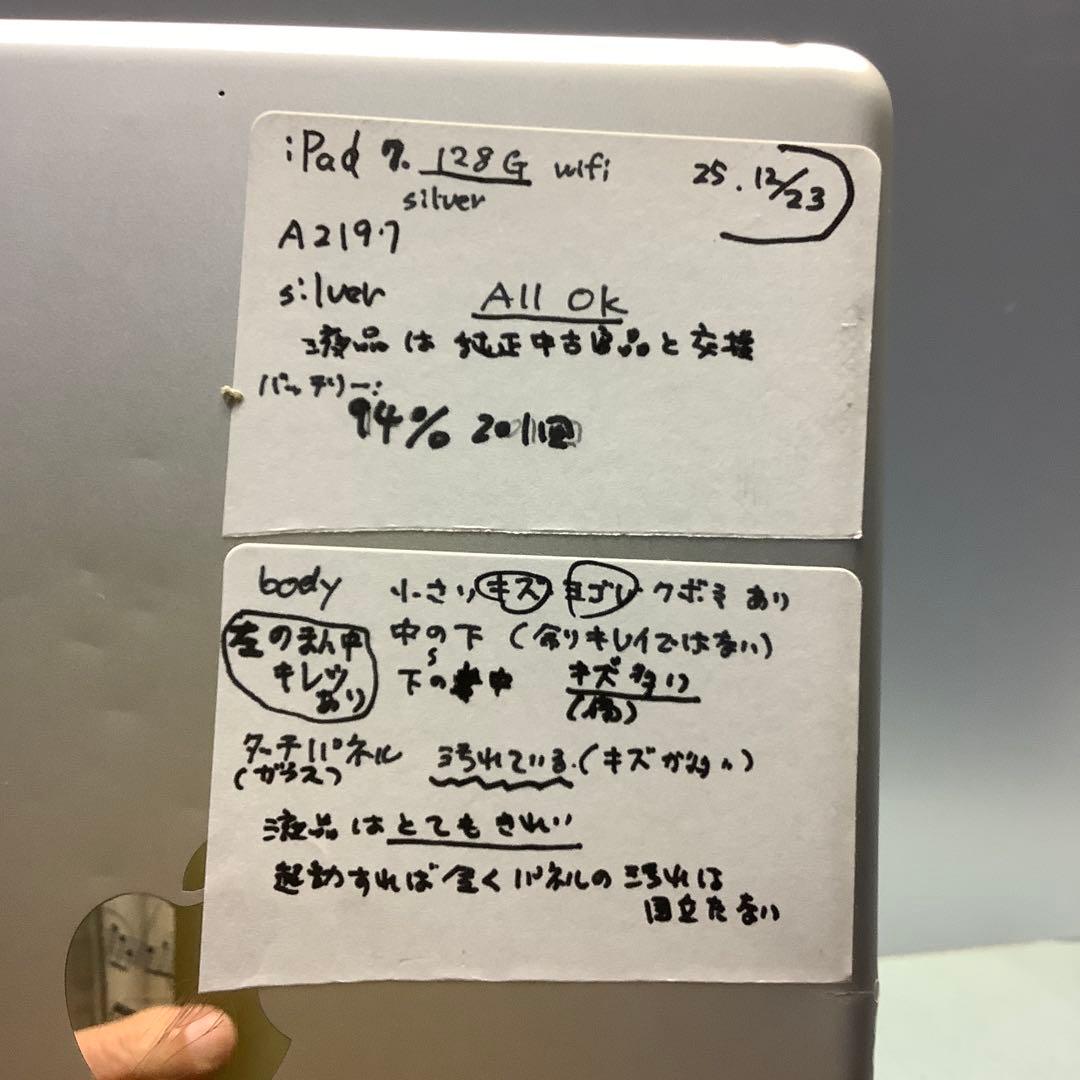 iPad 7. 128G wifi
25.12/23
silver
A2197
silver All Ok
液晶は純正中古良品と交換
バッテリー:
94% 201回
body 小さいキズヨゴレクボミあり
左のまん中 キレツあり
中の下 (余りキレイではない)
下の中 キズ多い
(傷)
タッチパネル 汚れている.(キズが多い)
(ガラス)
液晶はとてもきれい
起動すれば全くパネルの汚れは
目立たない